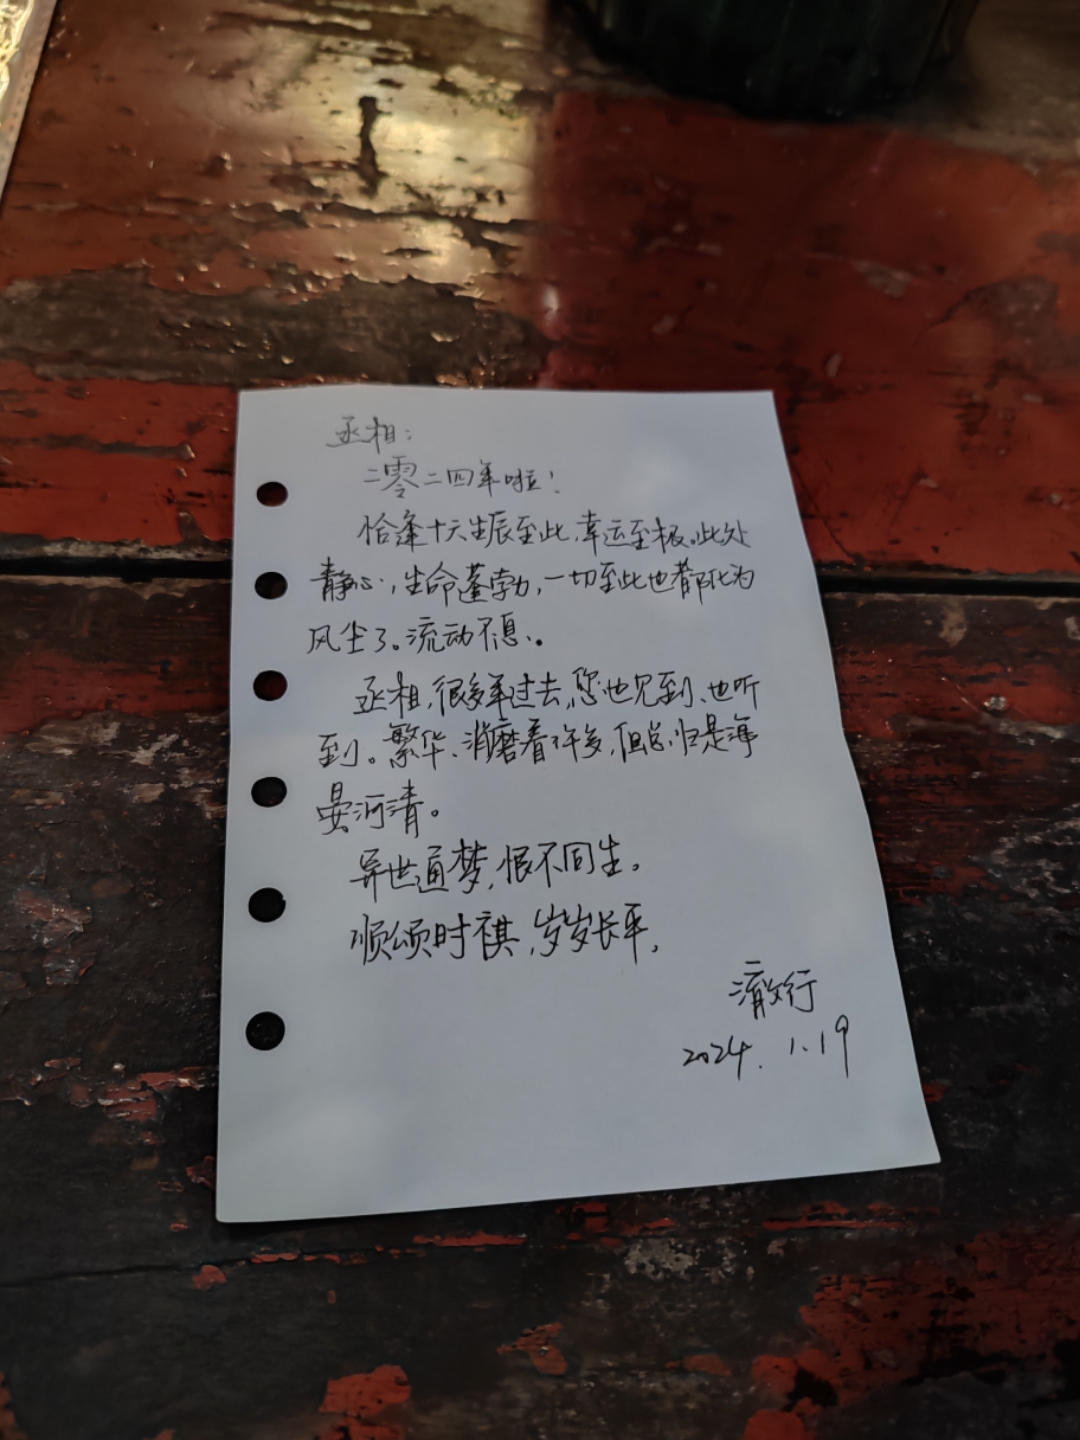 丞相：
二零二四年啦！
恰逢十六生辰至此，幸运至极。此处
静心，生命蓬勃，一切至此也都化为
风尘了。流动不息。
丞相，很多年过去，您也见到、也听
到。繁华、消磨看许多，但总归是海
晏河清。
异世通梦，恨不同生。
顺颂时祺，岁岁长平，
行
2024.1.19